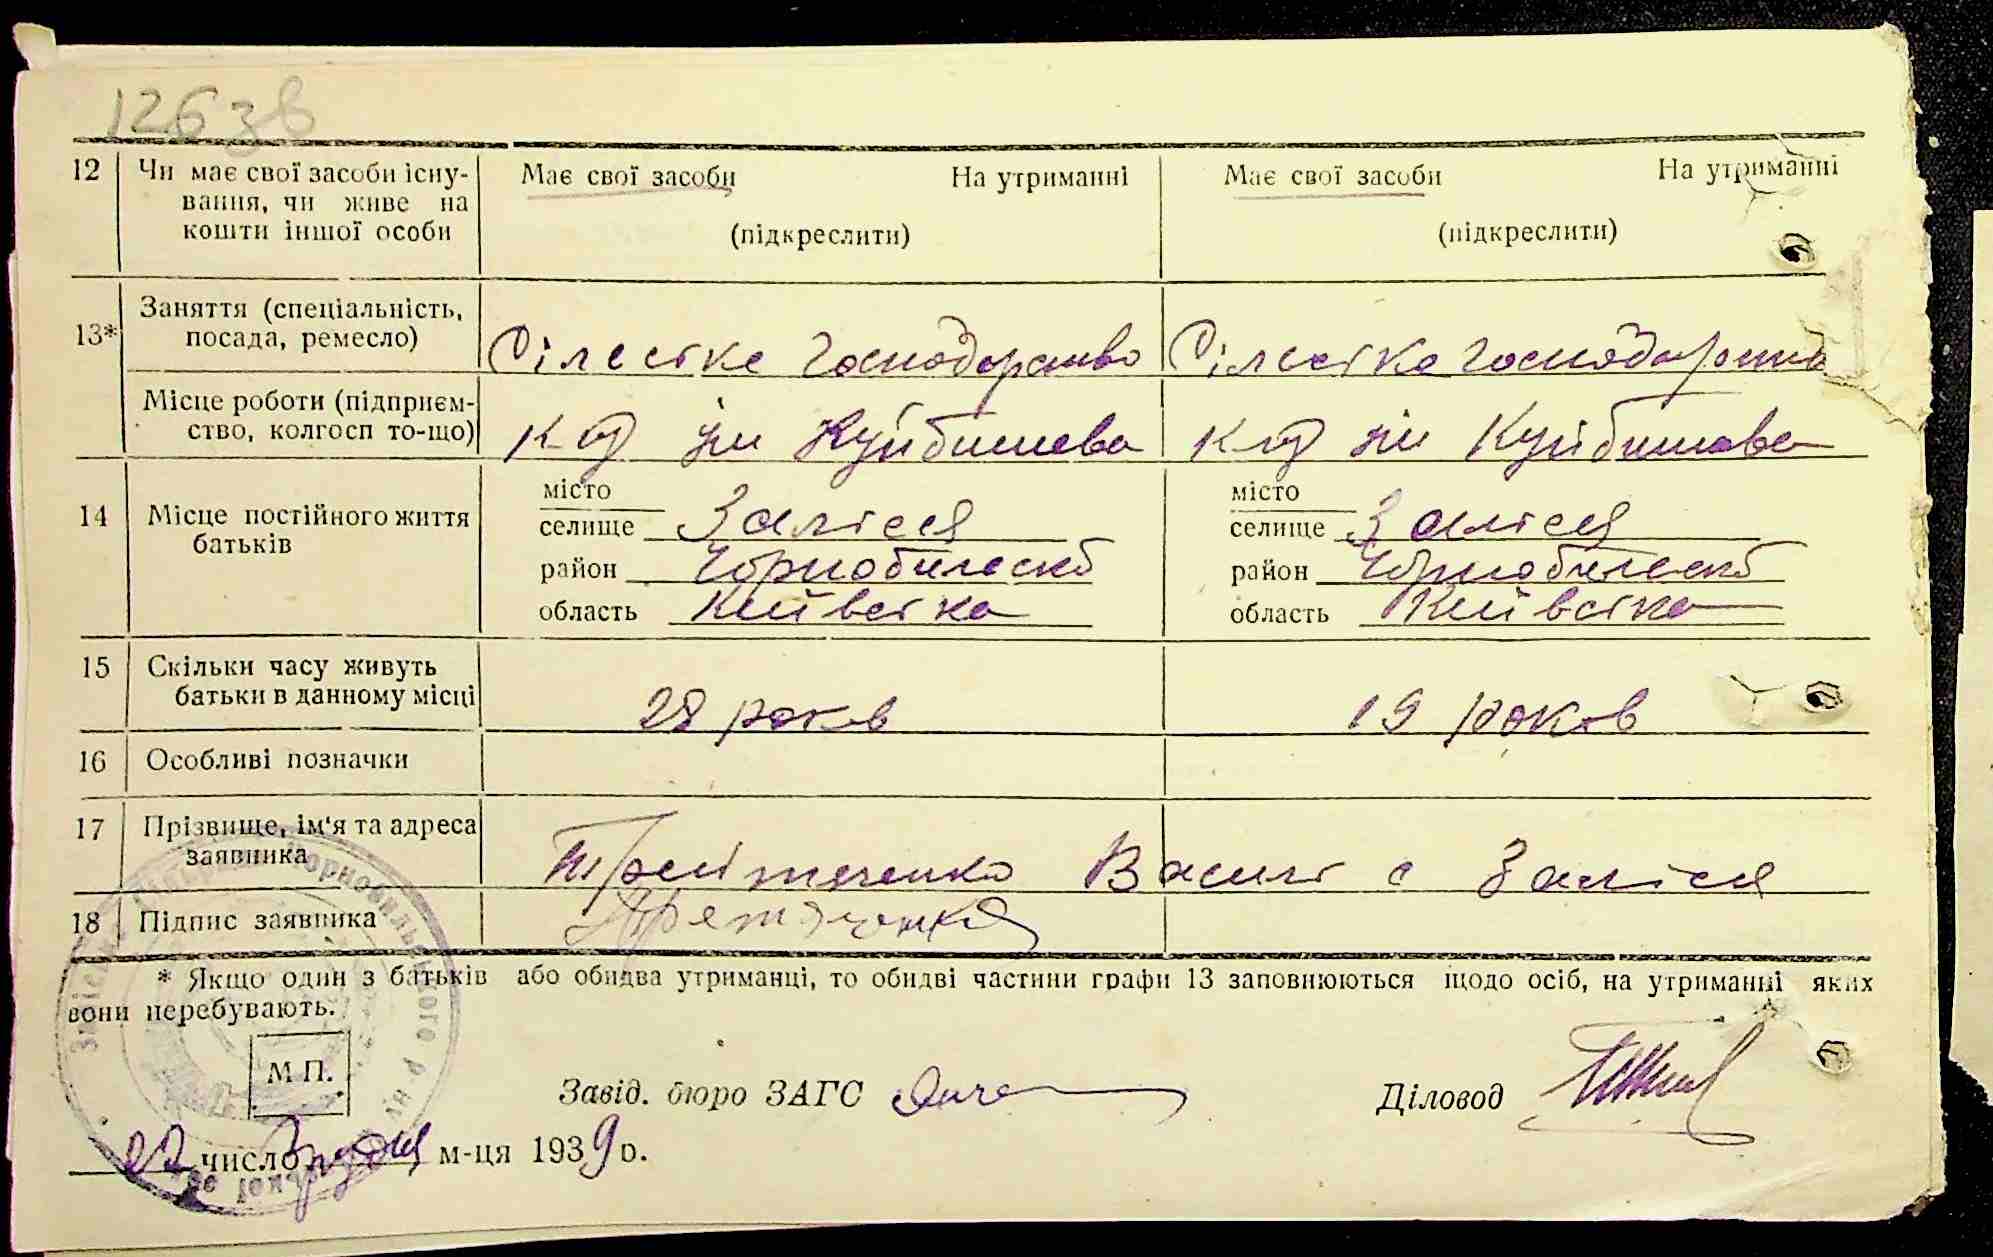 126 зв
12 Чи має свої засоби існу- Має свої засоби На утриманні Має свої засоби На утриманні
вання, чи живе на
кошти іншої особи (підкреслити) (підкреслити)
13* Заняття (спеціальність,
посада, ремесло) Сільстке Господорство Сільстке Господорство
Місце роботи (підприєм-
ство, колгосп то-що) к-п ім Куйбишева к-п ім Куйбишева
місто місто
14 Місце постійного життя селище Залісся селище Залісся
батьків район Чорнобильськ район Чорнобильськ
область Київстка область Київстка
15 Скільки часу живуть
батьки в данному місці 28 років 19 років
16 Особливі позначки
17 Прізвище, ім'я та адреса
заявника Василь с Залісся
18 Підпис заявника
* Якщо один з батьків або обидва утриманці, то обидві частини графи 13 заповнюються щодо осіб, на утриманні яких
вони перебувають.
М П.
Завід. бюро ЗАГС Діловод
22 число Грудня м-ця 1939 р.
Чорнобильського р-ну